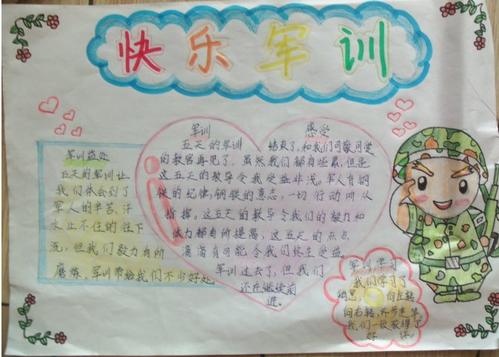 快乐军训
军训益处
五天的军训让
我们体会到了
军人的辛苦、汗
水止不住的往下
流，但我们毅力有所
磨炼，军训带给我们不少好处。
军训 感受
五天的军训 结束了，和我们可敬可爱
的教官再见了。虽然我们都有些累，但是
这五天的教导令我受益非浅。军人有钢
铁的纪律，钢铁的意志，一切行动听从
指挥，这五天的教导令我们的毅力和
体力都有所提高，这五天的点点
滴滴有可能令我们终生受益。
军训过去了，但我们
还在继续前
进。
军训学习
我们学习了
稍息， 向左转
向右转，齐步走等
我们一致获得了
好